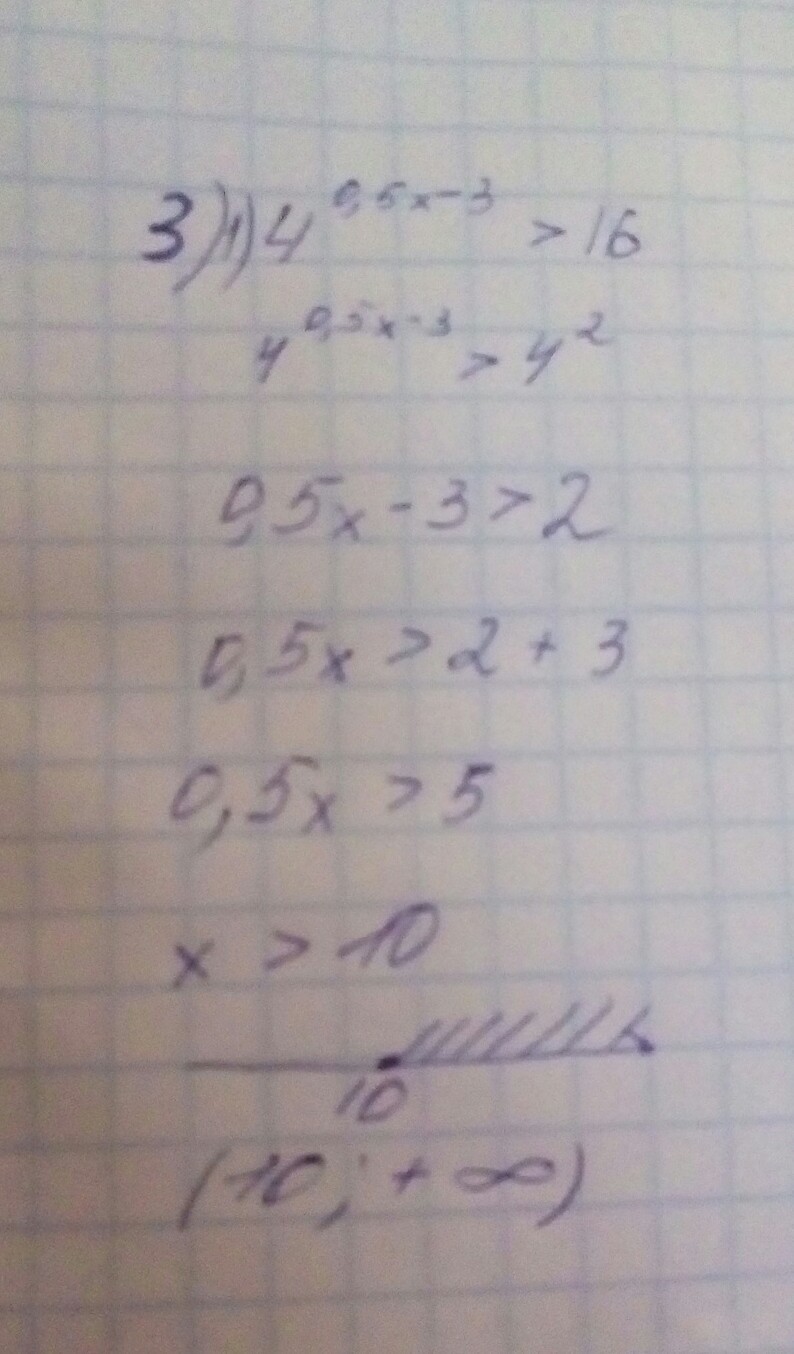 3) 1) 4^{0,5x-3} > 16
4^{0,5x-3} > 4^2
0,5x - 3 > 2
0,5x > 2 + 3
0,5x > 5
x > 10
10
(10; + ∞)